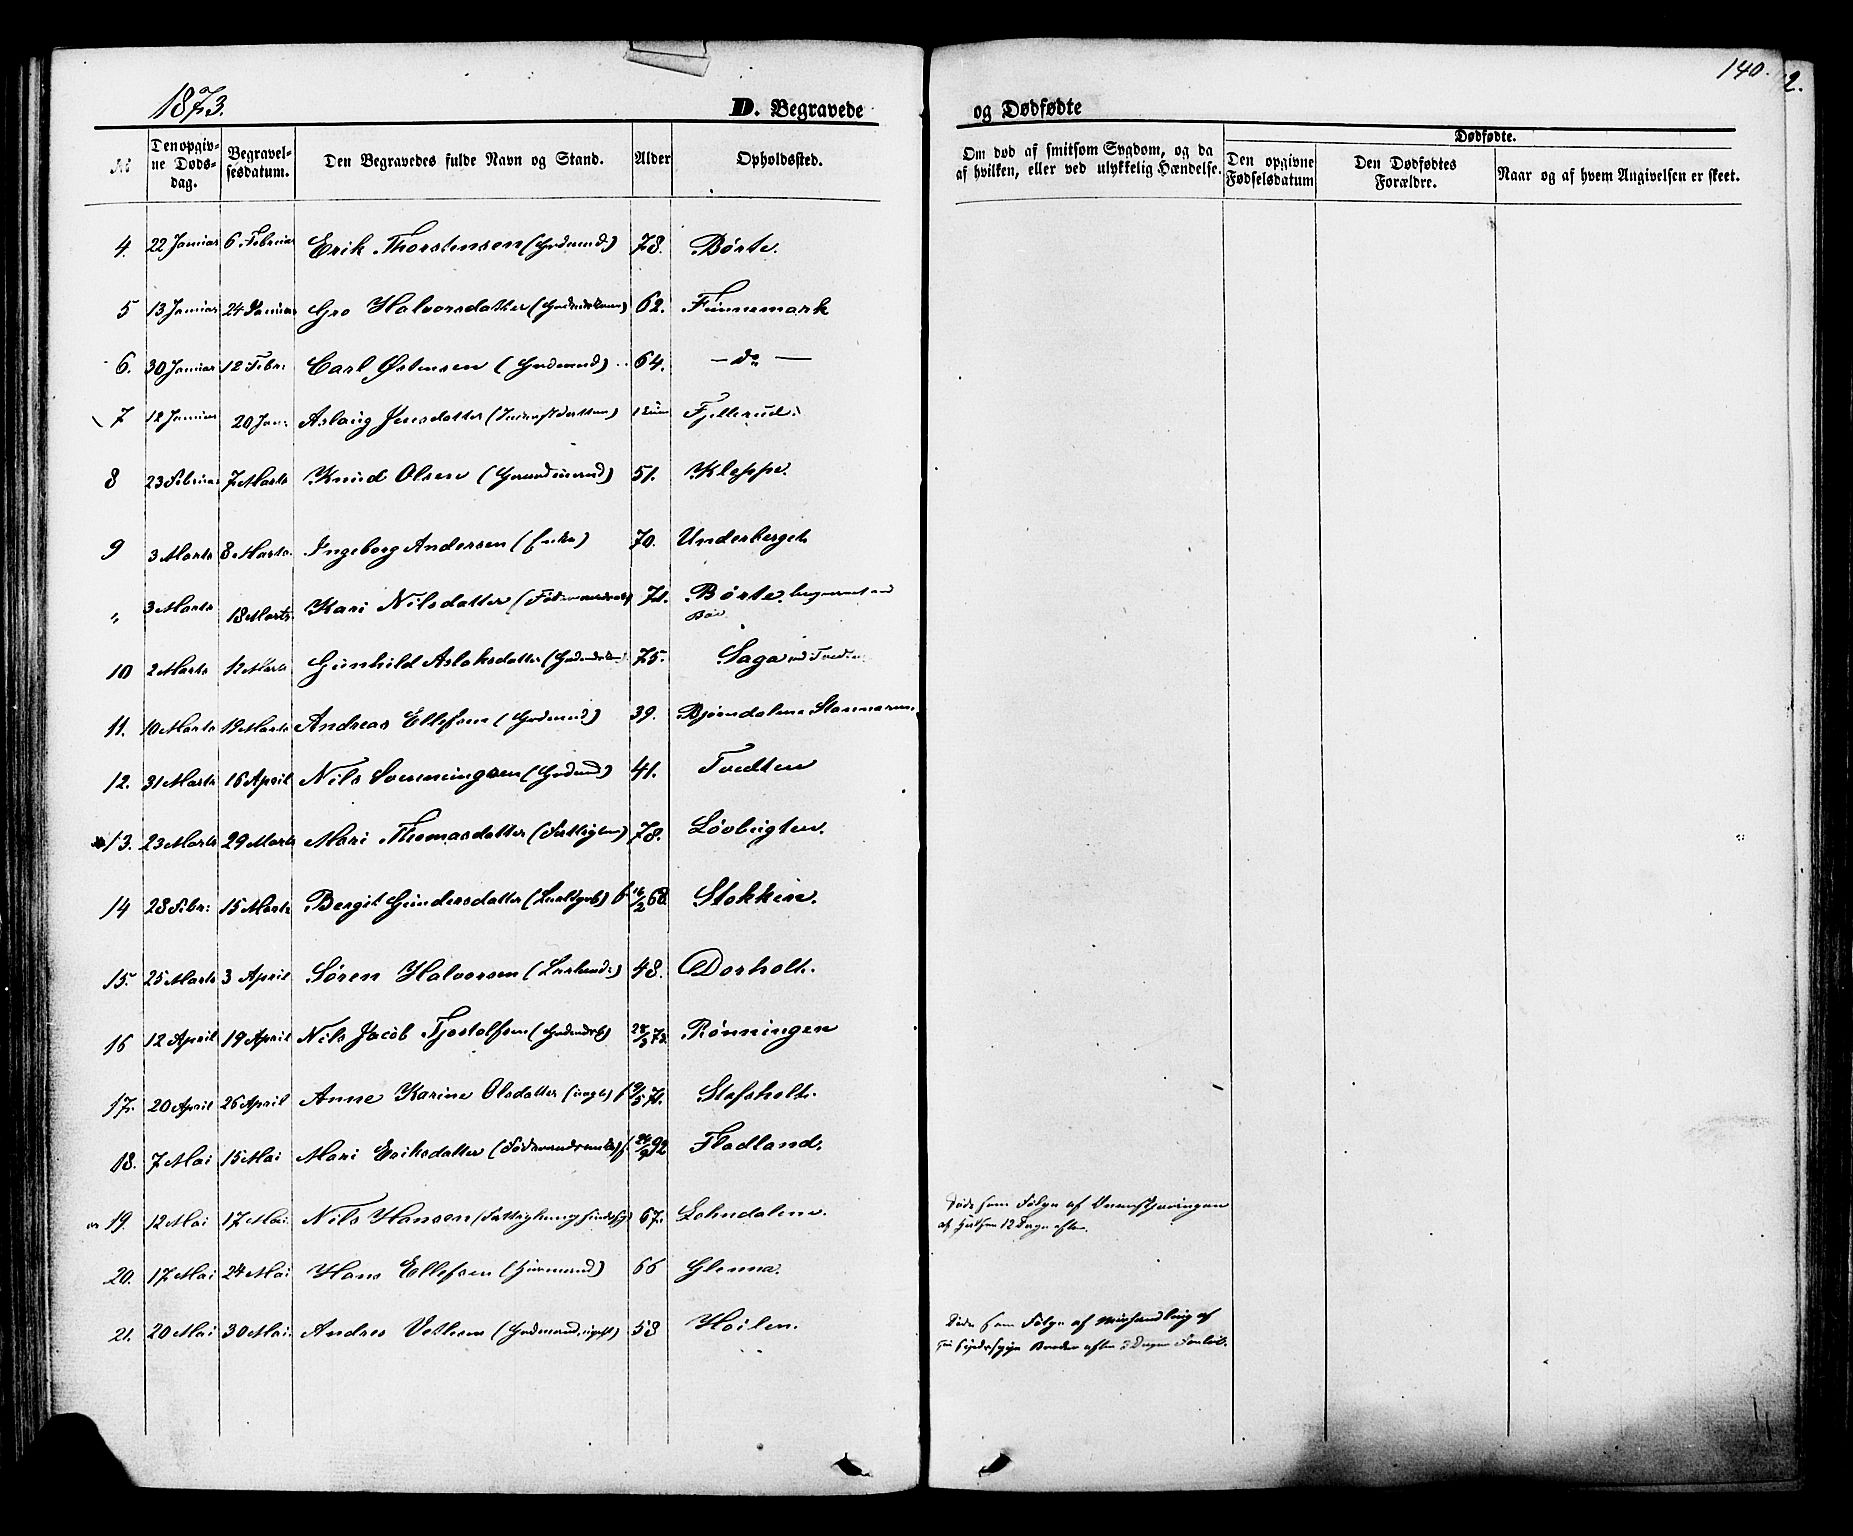 1873.
D. Begravede
og Dødfødte
140.
2.
No
Den opgivne Dødsdag.
Begravelsesdatum.
Den Begravedes fulde Navn og Stand.
Alder
Opholdssted.
Om død af smitsom Sygdom, og da af hvilken, eller ved ulykkelig Hændelse.
Dødfødte.
Den opgivne Fødselsdatum
Den Dødfødtes Forældre.
Naar og af hvem Angivelsen er skeet.
4. 22 Januar 6 Februar Erik Thorstensen (Gvdmand.) 78. Børte.
5 13 Januar 24 Januar Gro Halvorsdatter 62. Finnemark
6. 30 Januar 12 Febr: Carl Østensen (Gvdmand) 64. — do —
7 12 Januar 20 Jan: Aslaug Jensdatter Fjellerud:
8 23 Februar 7 Marts Knud Olsen 51. Kleppe.
9 3 Marts 8 Marts. Ingeborg Andersen (Enke) 70. Underberget.
" 3 Marts 18 Marts. Kari Nilsdatter 71. Børte. begravet ved Bøe.
10 2 Marts 12 Marts Gunhild Aslaksdatter 75. Saga
11. 10 Marts 19 Marts Andreas Ellefsen (Gvdmand) 39. Bjørndalene
12. 31 Marts 16 April Nils Svenningsen (Gvdmd) 41. Tvedten
13. 23 Marts 29 Marts Mari Thomasdatter (Fattiglem) 78. Løvbugten.
14 28 Febr: 15 Marts Bergit Gundersdatter f. 16/2 68. Stokken.
15. 25 Marts 3 April Søren Halvorsen 48. Dorholt.
16 12 April 19 April Nils Jacob Tjostolfsen 28/3 73. Rønningen
17. 20 April 26 April Anne Karine Olsdatter (ugt) f 9/5 71. Stefsholt.
18. 7 Mai 15 Mai Mari Eriksdatter 92 Fladland.
19. 12 Mai 17 Mai. Nils Hansen 67. Lohndalene
Døde som Følge af
af 12 Dage efter.
20. 17 Mai 24 Mai Hans Ellefsen (Huusmand) 66 Glenna.
21. 20 Mai 30 Mai. Andres Vetlesen (Gvdmand, ugift) 58 Høilen.
Døde som Følge af Mishandling af
Broder efter 3 Dages Forløb.